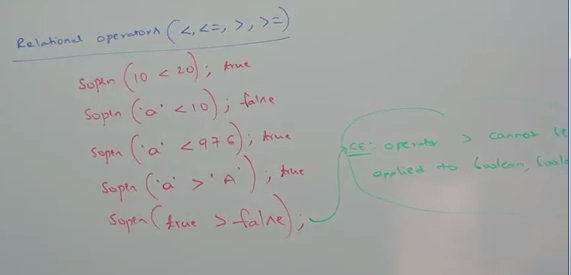 Relational operators (<, <=, >, >=)
Sopln (10 < 20); true
Sopln ('a' < 10); false
Sopln ('a' < 97.6); true
Sopln ('a' > 'A'); true
Sopln (true > false);
CE: operator > cannot be
applied to boolean,